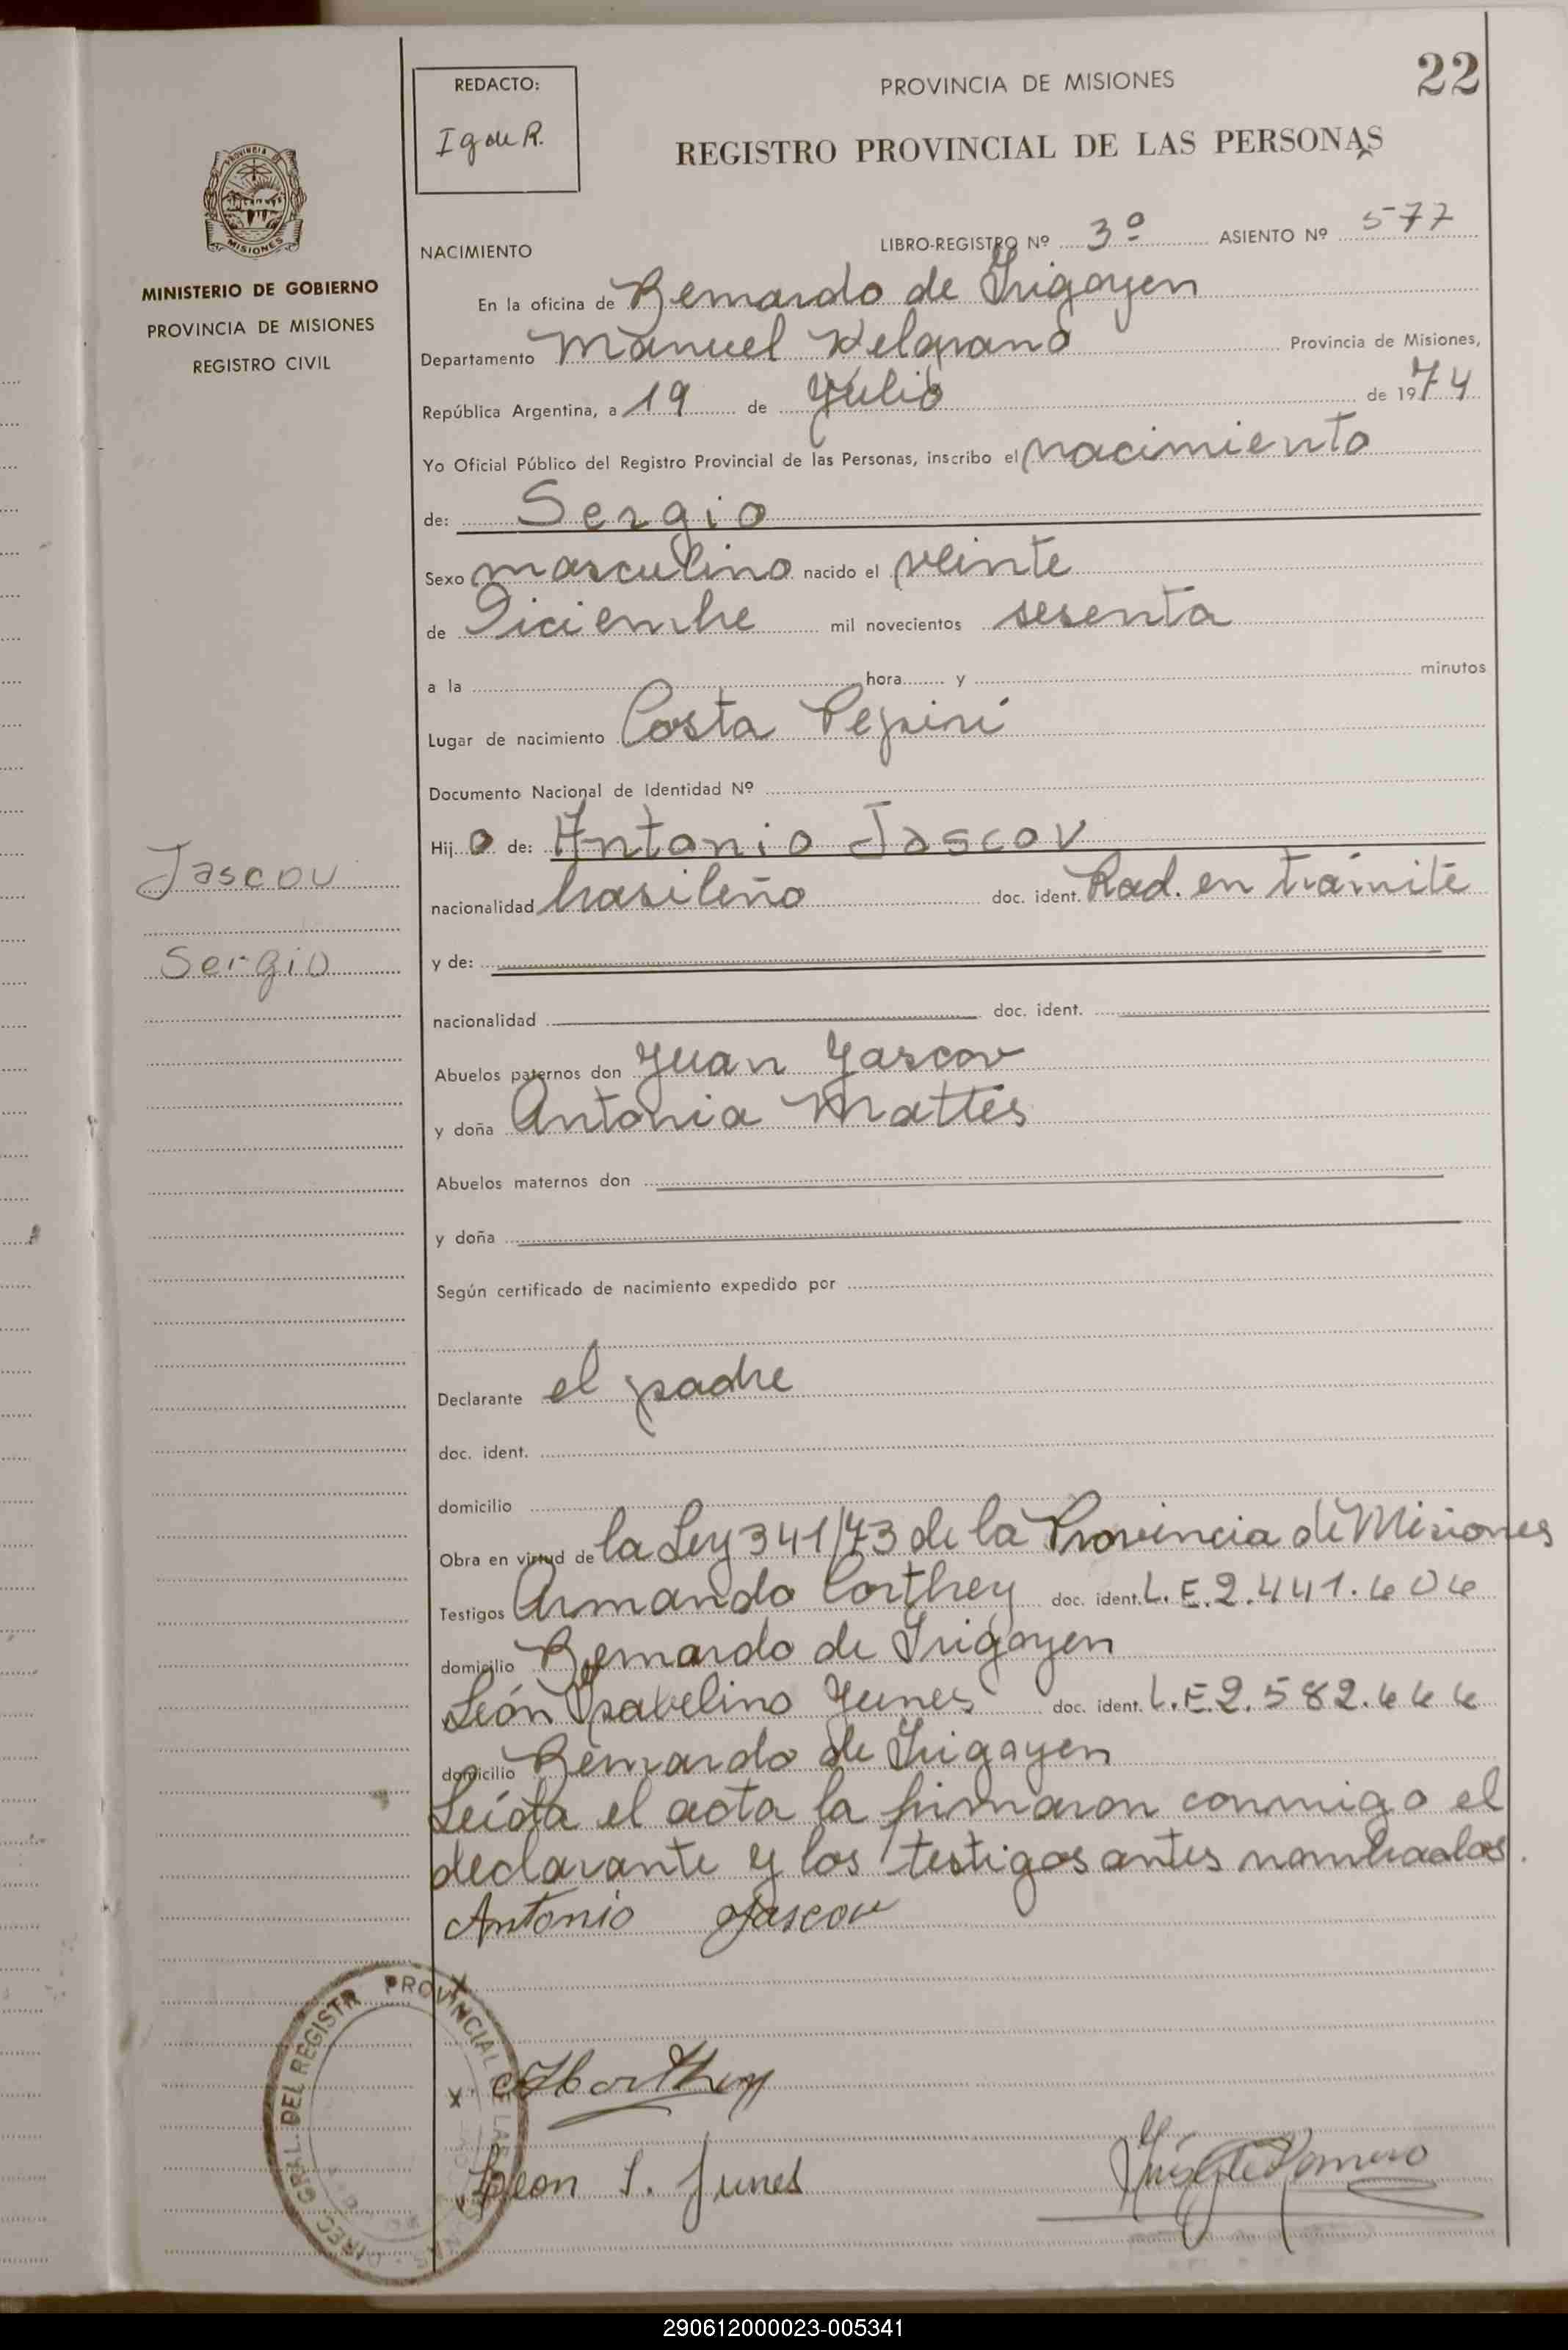 22
REDACTO:
I g de R.
PROVINCIA DE MISIONES
REGISTRO PROVINCIAL DE LAS PERSONAS
PROVINCIA DE
MISIONES
MINISTERIO DE GOBIERNO
PROVINCIA DE MISIONES
REGISTRO CIVIL
NACIMIENTO LIBRO-REGISTRO Nº 3º ASIENTO Nº 577
En la oficina de Bernardo de Irigoyen
Departamento Manuel Belgrano Provincia de Misiones,
República Argentina, a 19 de Julio de 1974
Yo Oficial Público del Registro Provincial de las Personas, inscribo el nacimiento
de: Sergio
Sexo masculino nacido el veinte
de Diciembre mil novecientos sesenta
a la hora y minutos
Lugar de nacimiento Costa Pepirí
Documento Nacional de Identidad Nº
Hijo de: Antonio Jascov
nacionalidad brasileño doc. ident. Rad. en trámite
y de:
nacionalidad doc. ident.
Abuelos paternos don Juan Jascov
y doña Antonia Mattes
Abuelos maternos don
y doña
Según certificado de nacimiento expedido por
Declarante el padre
doc. ident.
domicilio
Obra en virtud de la Ley 341/73 de la Provincia de Misiones
Testigos Armando Corthey doc. ident. L.E.2.441.606
domicilio Bernardo de Irigoyen
León Isabelino Junes doc. ident. L.E.2.582.666
domicilio Bernardo de Irigoyen
Leída el acta la firmaron conmigo el
declarante y los testigos antes nombrados.
Jascov
Sergio
Antonio Jascov
Leon I. Junes
DIREC. GRAL. DEL REGISTR PROVINCIAL DE LAS
290612000023-005341